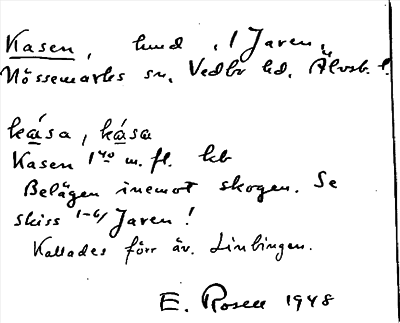 Kasen, hmd, 1 Jaren,
Nössemarks sn, Vedbo hd, Älvsb. l.
kása, kása
Kasen 1⁴⁰ m. fl. kb
Belägen inemot skogen. Se
skiss 1-6/ Jaren!
Kallades förr äv. Linbingen.
E. Rosen 1948